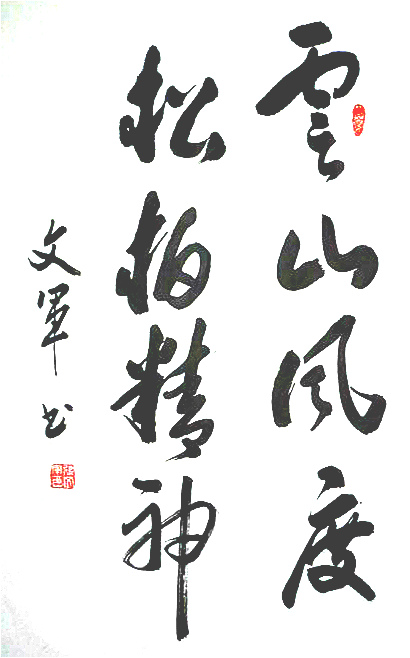 雲山风度
松柏精神
文軍书